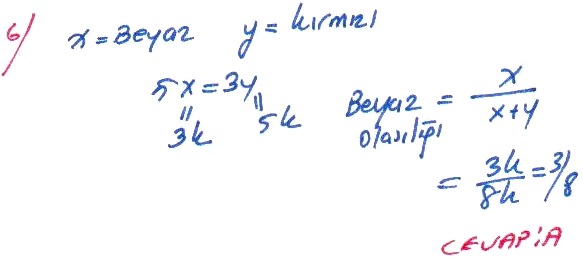 6) x = Beyaz y = kırmızı
5x = 3y
3k 5k
Beyaz olasılığı = x/(x+y)
= 3k/8k = 3/8
CEVAP: A